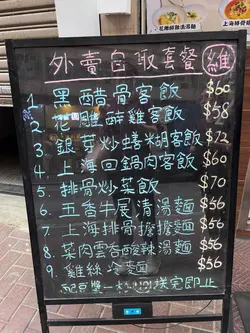 外賣自取套餐 維
1. 黑醋骨客飯 $60
2. 花雕醉雞客飯 $58
3. 銀芽炒鱔糊客飯 $72
4. 上海回鍋肉客飯 $60
5. 排骨炒菜飯 $70
6. 五香牛展清湯麵 $56
7. 上海排骨擔擔麵 $56
8. 菜肉雲吞酸辣湯麵 $56
9. 雞絲冷麵 $56
配豆漿一杯 送完即止